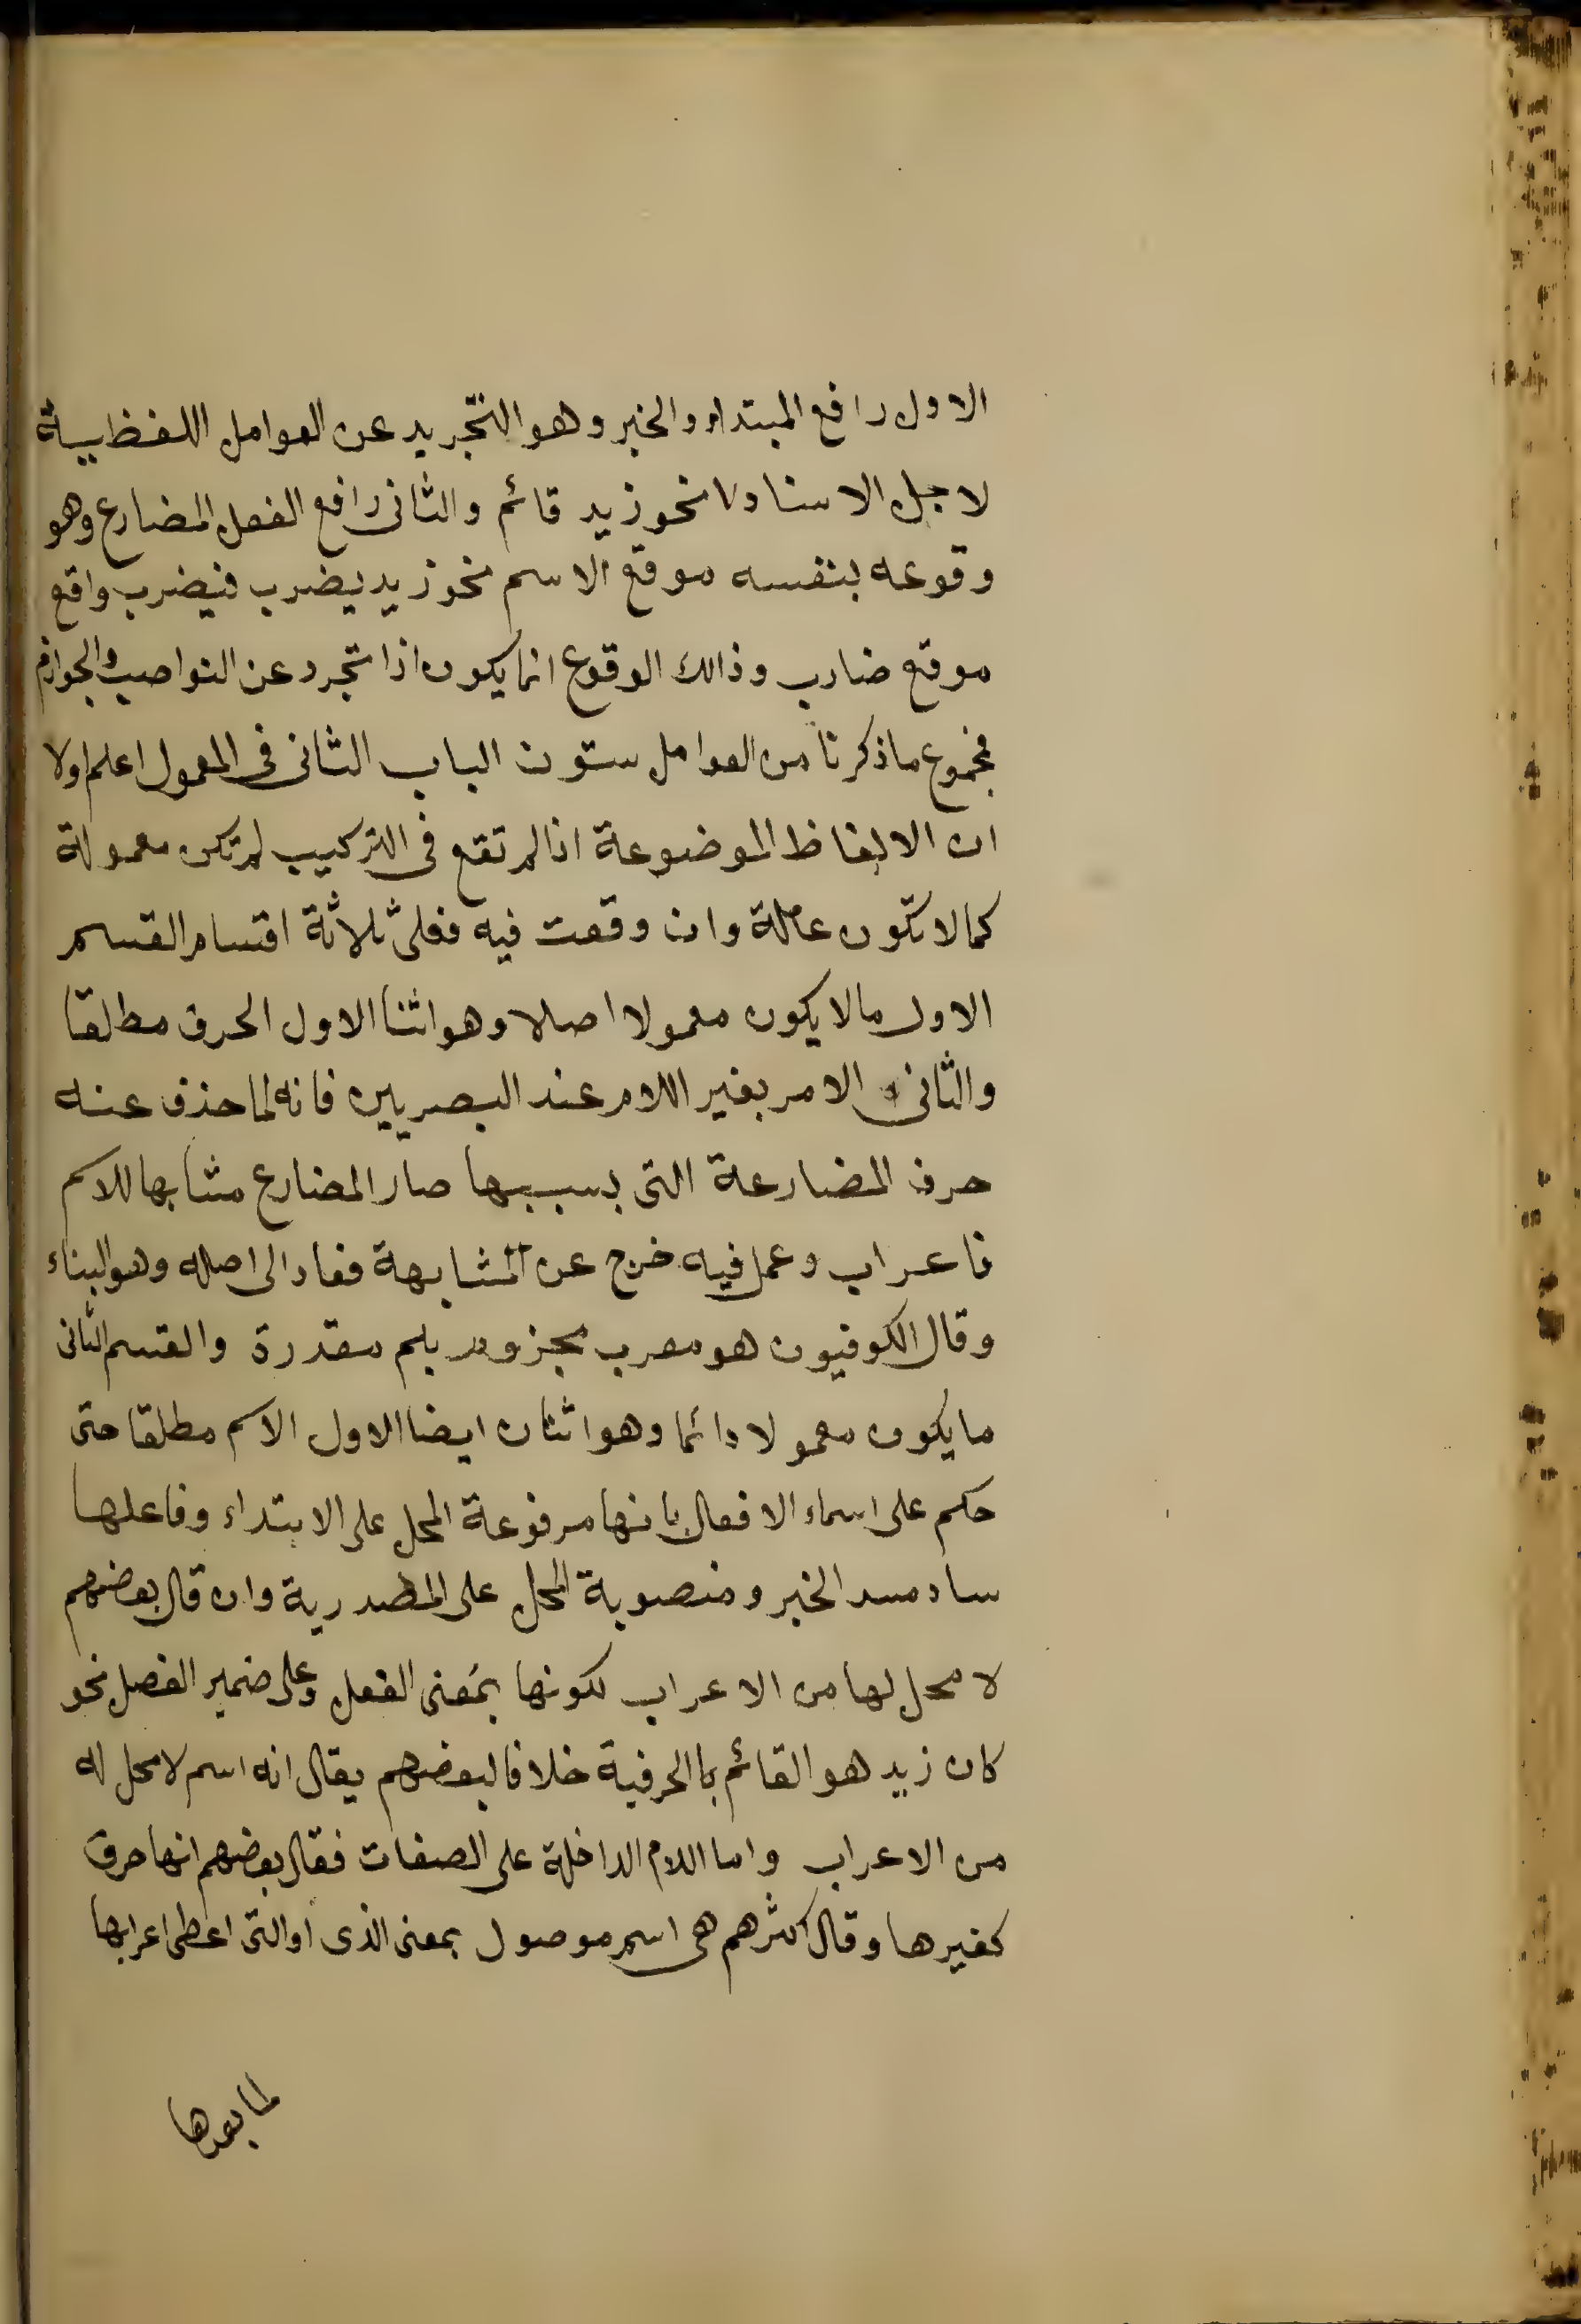 الاول رافع المبتداء والخبر وهو التجريد عن العوامل اللفظيية
لاجل الاسناد نحو زيد قائم والثانى رافع الفعل المضارع وهو
وقوعه بنفسه موقع الاسم نحو زيد يضرب فيضرب واقع
موقع ضارب وذالك الوقوع انما يكون اذا تجرد عن النواصب والجوازم
فمجموع ما ذكرنا من العوامل ستون الباب الثانى فى المعمول اعلم اولا
ان الالفاظ الموضوعة اذا لم تقع فى التركيب لم تكن معمولة
كما لا تكون عاملة وان وقعت فيه فعلى ثلاثة اقسام القسم
الاول ما لا يكون معمولا اصلا وهو اثنا الاول الحرف مطلقا
والثانى الامر بغير اللام عند البصريين فانه لما حذف عنه
حرف المضارعة التى بسببها صار المضارع مشابها للاسم
فاعراب وعمل فيه خرج عن المشابهة فعاد الى اصله وهو البناء
وقال الكوفيون هو معرب مجزوم بلم مقدرة والقسم الثانى
ما يكون معمولا دائما وهو اثنان ايضا الاول الاسم مطلقا حتى
حكم على اسماء الافعال بانها مرفوعة المحل على الابتداء وفاعلها
ساد مسد الخبر ومنصوبة المحل على المصدرية وان قال بعضهم
لا محل لها من الاعراب لكونها بمعنى الفعل وعلى ضمير الفصل نحو
كان زيد هو القائم بالحرفية خلافا لبعضهم يقال انه اسم لا محل له
من الاعراب واما اللام الداخلة على الصفات فقال بعضهم انها حرف
كغيرها وقال اكثرهم هى اسم موصول بمعنى الذى او التى اعطى اعرابها
لما بعدها